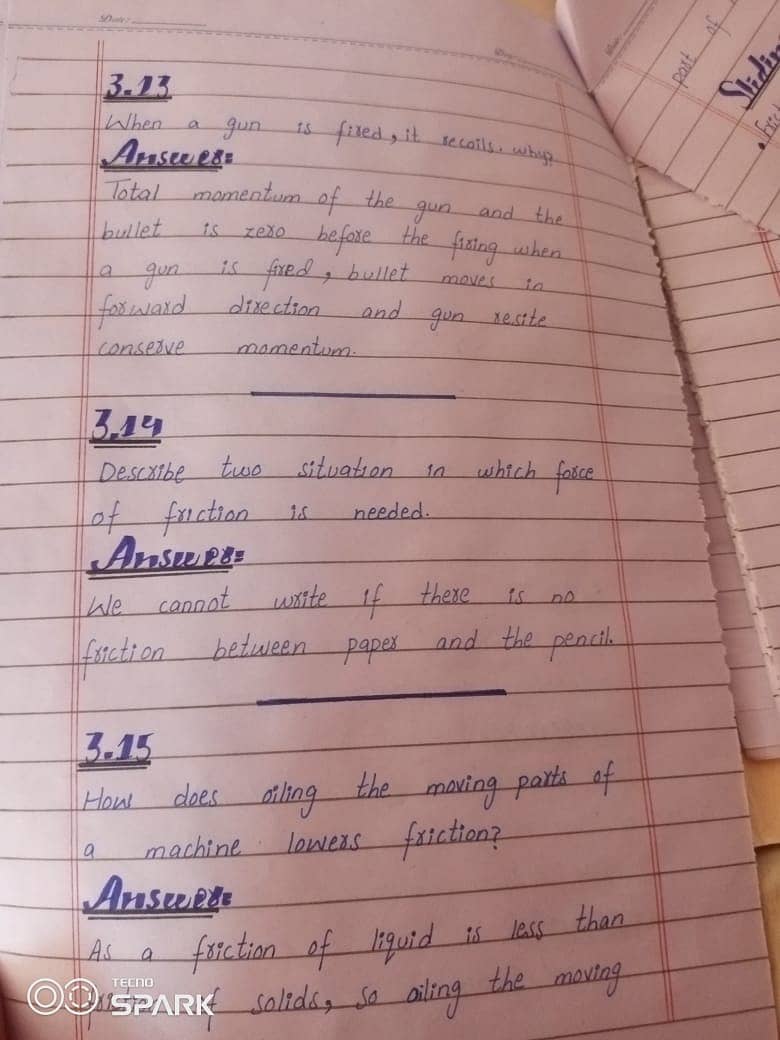 Date:
3.13
When a gun is fired, it recoils. why?
Answer:
Total momentum of the gun and the
bullet is zero before the firing when
a gun is fired, bullet moves in
forward direction and gun resite
conserve momentum.
3.14
Describe two situation in which force
of friction is needed.
Answer:
We cannot write if there is no
friction between paper and the pencil.
3.15
How does oiling the moving parts of
a machine lowers friction?
Answer:
As a friction of liquid is less than
of solids, so oiling the moving
TECNO
SPARK
past of